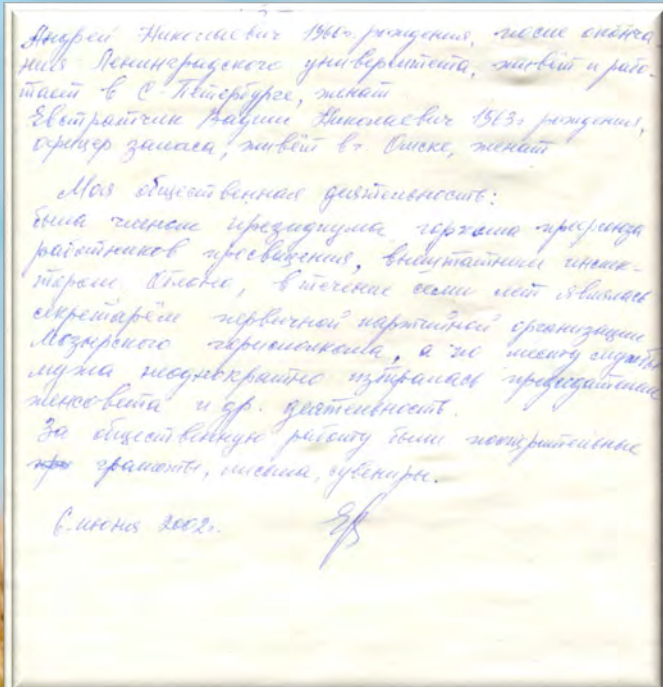 Андрей Николаевич 1960г. рождения, после оконча
ния Ленинградского университета, живёт и рабо-
тает в С-Петербурге, женат
Евстратчик Вадим Николаевич 1963г рождения,
офицер запаса, живёт в г. Омске, женат
Моя общественная деятельность:
была членом президиума горкома профсоюза
работников просвещения, внештатным инспек-
тором Облоно, в течение семи лет являлась
секретарём первичной партийной организации
Мозырского горисполкома, а по месту службы
мужа неоднократно избиралась председателем
женсовета и др. деятельность.
За общественную работу были поощрительные
грамоты, письма, сувениры.
6 июня 2002г.